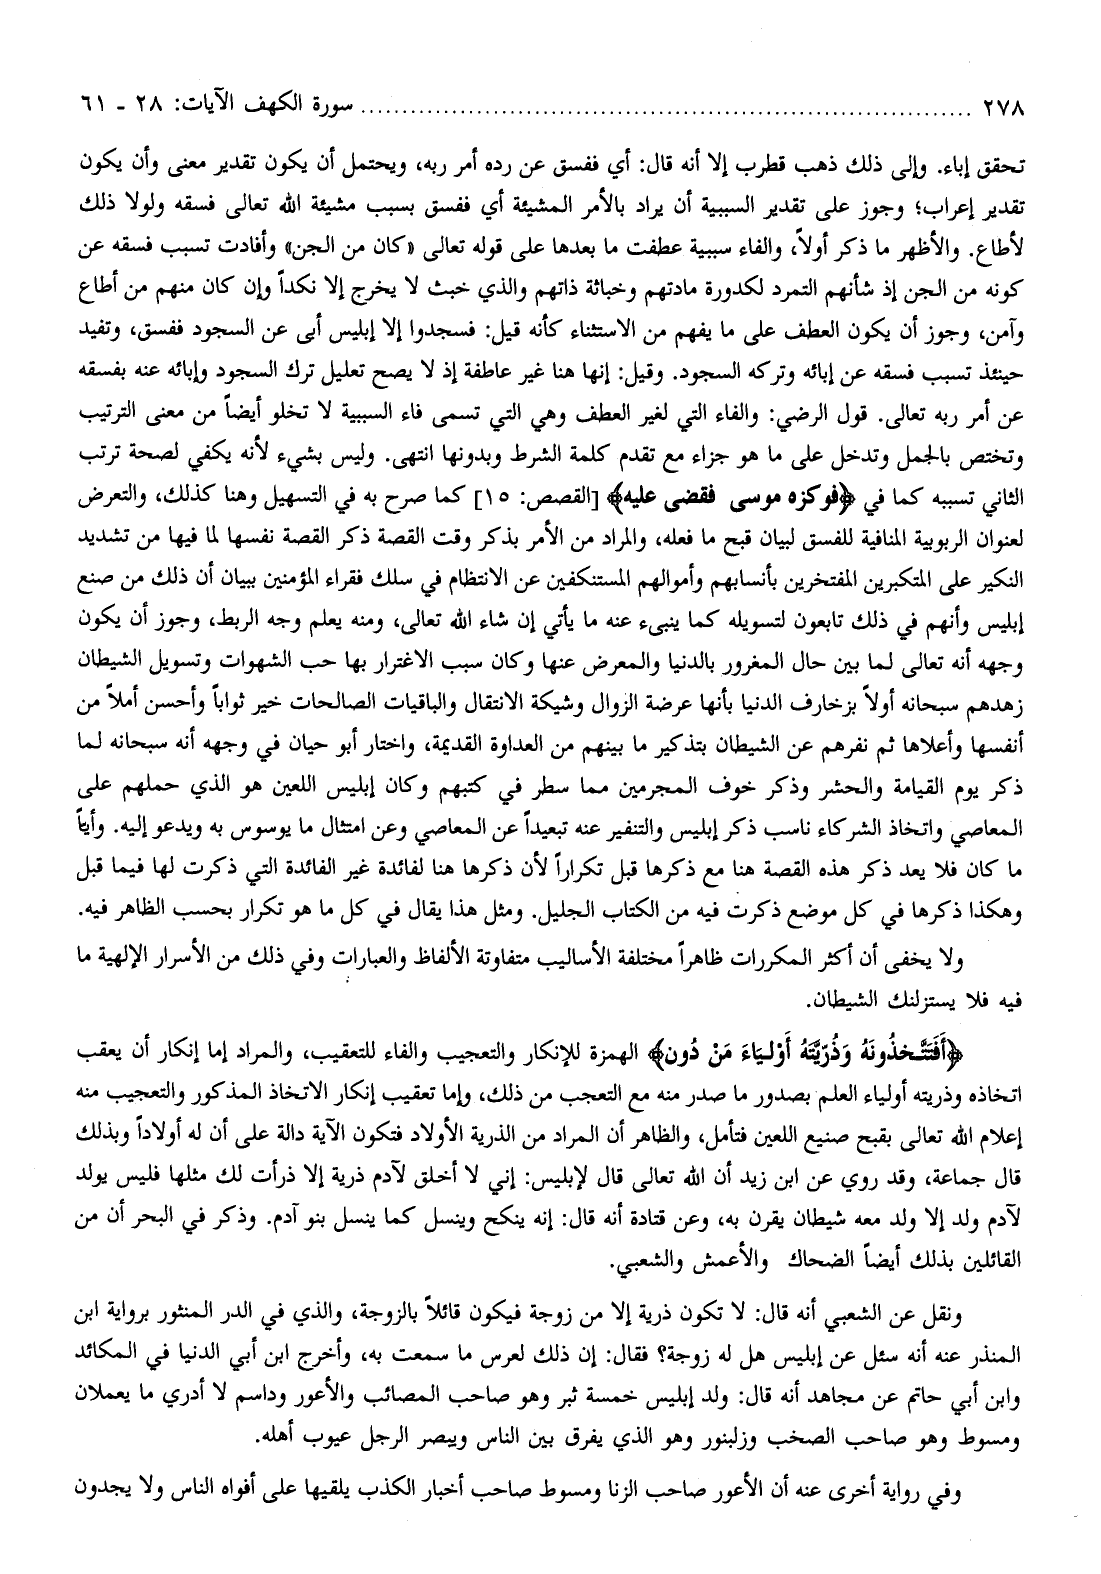 ٢٧٨ ........................................................................ سورة الكهف الآيات: ٢٨ ـ ٦١
تحقق إباء. وإلى ذلك ذهب قطرب إلا أنه قال: أي ففسق عن رده أمر ربه، ويحتمل أن يكون تقدير معنى وأن يكون
تقدير إعراب؛ وجوز على تقدير السببية أن يراد بالأمر المشيئة أي ففسق بسبب مشيئة الله تعالى فسقه ولولا ذلك
لأطاع. والأظهر ما ذكر أولاً، والفاء سببية عطفت ما بعدها على قوله تعالى «كان من الجن» وأفادت تسبب فسقه عن
كونه من الجن إذ شأنهم التمرد لكدورة مادتهم وخباثة ذاتهم والذي خبث لا يخرج إلا نكداً وإن كان منهم من أطاع
وآمن، وجوز أن يكون العطف على ما يفهم من الاستثناء كأنه قيل: فسجدوا إلا إبليس أبى عن السجود ففسق، وتفيد
حينئذ تسبب فسقه عن إبائه وتركه السجود. وقيل: إنها هنا غير عاطفة إذ لا يصح تعليل ترك السجود وإبائه عنه بفسقه
عن أمر ربه تعالى. قول الرضي: والفاء التي لغير العطف وهي التي تسمى فاء السببية لا تخلو أيضاً من معنى الترتيب
وتختص بالجمل وتدخل على ما هو جزاء مع تقدم كلمة الشرط وبدونها انتهى. وليس بشيء لأنه يكفي لصحة ترتب
الثاني تسببه كما في ﴿فوكزه موسى فقضى عليه﴾ [القصص: ١٥] كما صرح به في التسهيل وهنا كذلك، والتعرض
لعنوان الربوبية المنافية للفسق لبيان قبح ما فعله، والمراد من الأمر بذكر وقت القصة ذكر القصة نفسها لما فيها من تشديد
النكير على المتكبرين المفتخرين بأنسابهم وأموالهم المستنكفين عن الانتظام في سلك فقراء المؤمنين ببيان أن ذلك من صنع
إبليس وأنهم في ذلك تابعون لتسويله كما ينبىء عنه ما يأتي إن شاء الله تعالى، ومنه يعلم وجه الربط، وجوز أن يكون
وجهه أنه تعالى لما بين حال المغرور بالدنيا والمعرض عنها وكان سبب الاغترار بها حب الشهوات وتسويل الشيطان
زهدهم سبحانه أولاً بزخارف الدنيا بأنها عرضة الزوال وشيكة الانتقال والباقيات الصالحات خير ثواباً وأحسن أملاً من
أنفسها وأعلاها ثم نفرهم عن الشيطان بتذكير ما بينهم من العداوة القديمة، واختار أبو حيان في وجهه أنه سبحانه لما
ذكر يوم القيامة والحشر وذكر خوف المجرمين مما سطر في كتبهم وكان إبليس اللعين هو الذي حملهم على
المعاصي واتخاذ الشركاء ناسب ذكر إبليس والتنفير عنه تبعيداً عن المعاصي وعن امتثال ما يوسوس به ويدعو إليه. وأياً
ما كان فلا يعد ذكر هذه القصة هنا مع ذكرها قبل تكراراً لأن ذكرها هنا لفائدة غير الفائدة التي ذكرت لها فيما قبل
وهكذا ذكرها في كل موضع ذكرت فيه من الكتاب الجليل. ومثل هذا يقال في كل ما هو تكرار بحسب الظاهر فيه.
ولا يخفى أن أكثر المكررات ظاهراً مختلفة الأساليب متفاوتة الألفاظ والعبارات وفي ذلك من الأسرار الإلهية ما
فيه فلا يستزلنك الشيطان.
﴿أَفَتَتَّخذُونَهُ وَذُرِّيَّتَهُ أَوْلِيَاءَ مَنْ دُون﴾ الهمزة للإنكار والتعجيب والفاء للتعقيب، والمراد إما إنكار أن يعقب
اتخاذه وذريته أولياء العلم بصدور ما صدر منه مع التعجب من ذلك، وإما تعقيب إنكار الاتخاذ المذكور والتعجيب منه
إعلام الله تعالى بقبح صنيع اللعين فتأمل، والظاهر أن المراد من الذرية الأولاد فتكون الآية دالة على أن له أولاداً وبذلك
قال جماعة، وقد روي عن ابن زيد أن الله تعالى قال لإبليس: إني لا أخلق لآدم ذرية إلا ذرأت لك مثلها فليس يولد
لآدم ولد إلا ولد معه شيطان يقرن به، وعن قتادة أنه قال: إنه ينكح وينسل كما ينسل بنو آدم. وذكر في البحر أن من
القائلين بذلك أيضاً الضحاك والأعمش والشعبي.
ونقل عن الشعبي أنه قال: لا تكون ذرية إلا من زوجة فيكون قائلاً بالزوجة، والذي في الدر المنثور برواية ابن
المنذر عنه أنه سئل عن إبليس هل له زوجة؟ فقال: إن ذلك لعرس ما سمعت به، وأخرج ابن أبي الدنيا في المكائد
وابن أبي حاتم عن مجاهد أنه قال: ولد إبليس خمسة ثبر وهو صاحب المصائب والأعور وداسم لا أدري ما يعملان
ومسوط وهو صاحب الصخب وزلبنور وهو الذي يفرق بين الناس ويبصر الرجل عيوب أهله.
وفي رواية أخرى عنه أن الأعور صاحب الزنا ومسوط صاحب أخبار الكذب يلقيها على أفواه الناس ولا يجدون